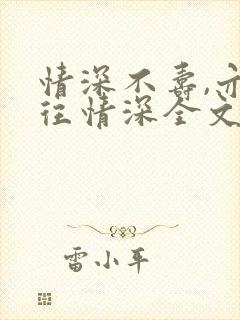 情深不寿,亦
往情深全文
雷小平